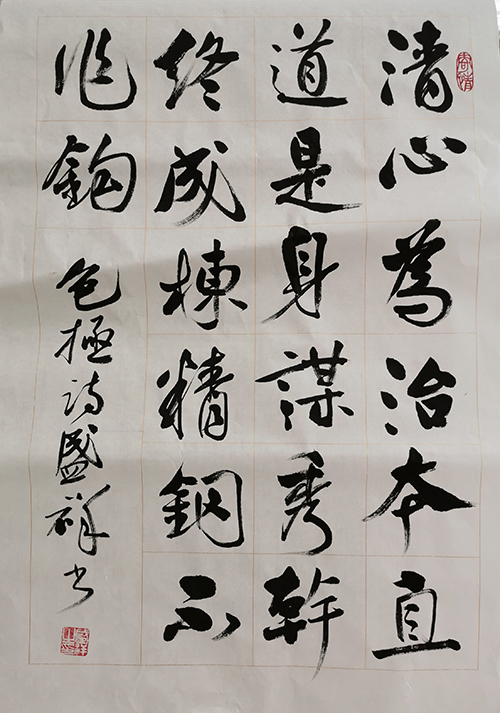 清心為治本直
道是身謀秀幹
終成棟精鋼不
作鉤
包拯诗盛祥书